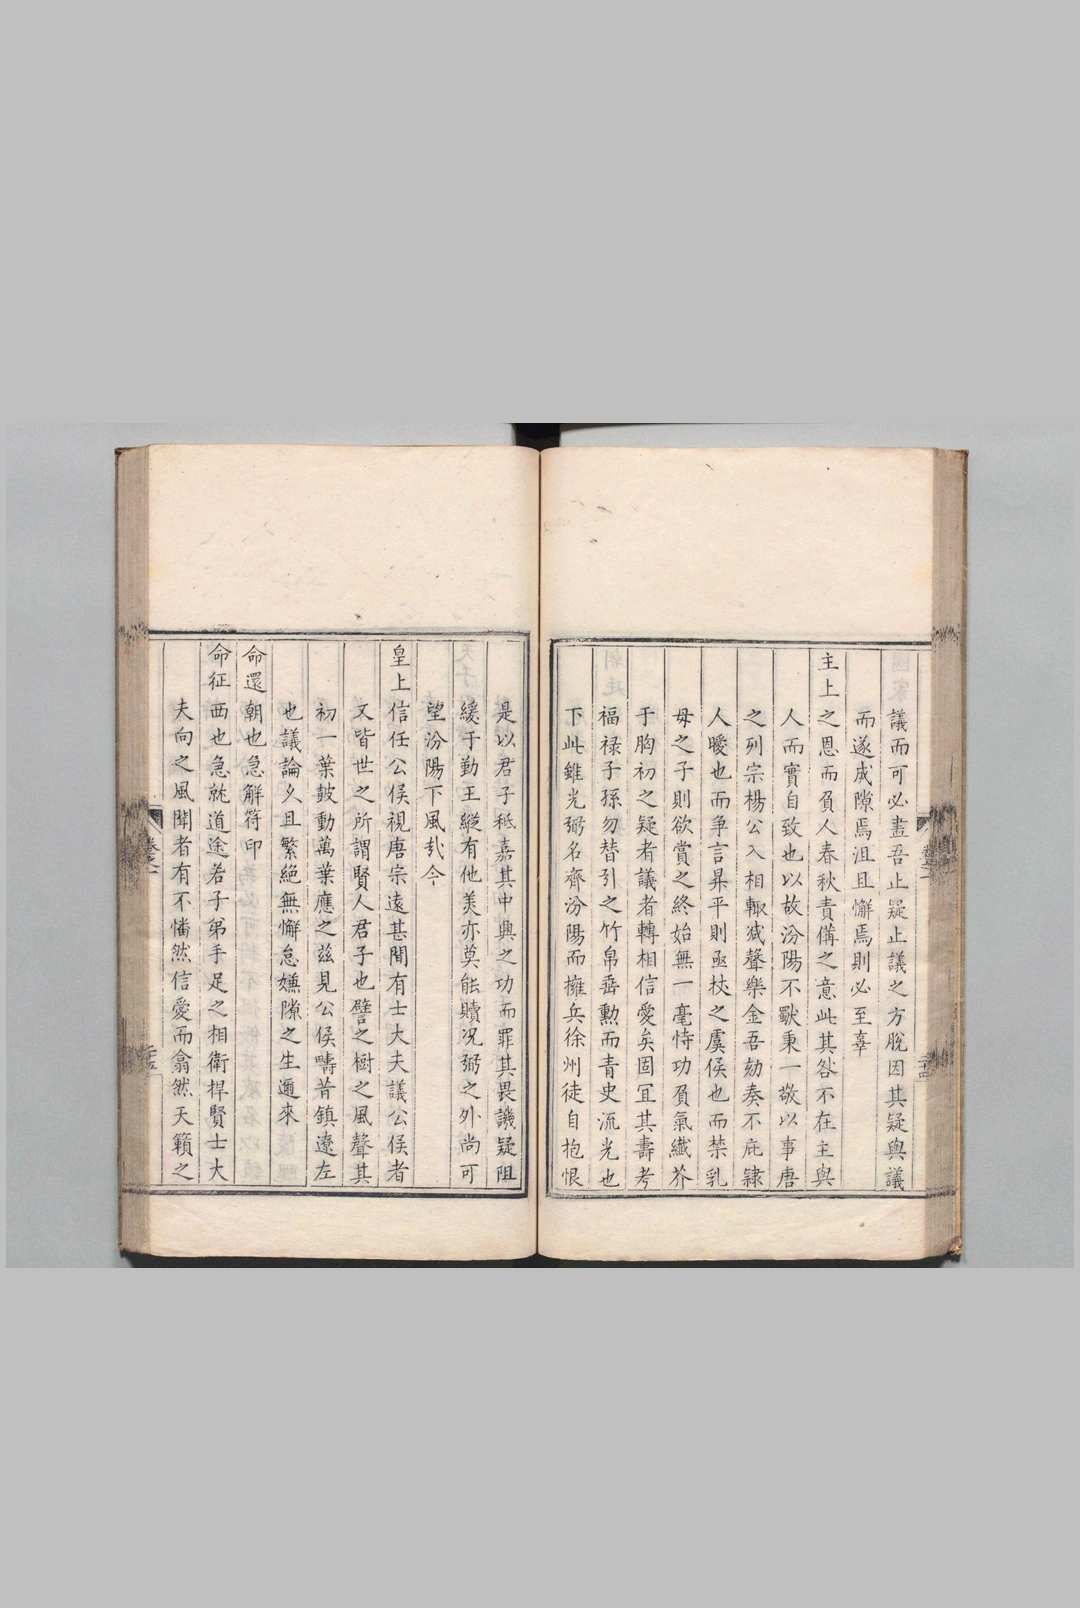 議而可必盡吾止疑止議之方脫因其疑與議
而遂成隙焉沮且懈焉則必至辜
主上之恩而負人春秋責備之意此其咎不在主與
人而實自致也以故汾陽不獸秉一敬以事唐
之列宗楊公入相輙減聲樂金吾劾奏不庇隷
人曖也而争言昇平則亟杖之虞侯也而禁乳
母之子則欲賞之終始無一毫恃功負氣纎芥
于胸初之疑者議者轉相信愛矣固宜其壽考
福禄子孫勿替引之竹帛垂勳而青史流光也
下此雖光弼名齊汾陽而擁兵徐州徒自抱恨
是以君子秪嘉其中興之功而罪其畏譏疑阻
緩于勤王縱有他美亦莫能贖况弼之外尚可
望汾陽下風㢤今
皇上信任公侯視唐宗遠甚聞有士大夫議公侯者
又皆世之所謂賢人君子也譬之樹之風聲其
初一葉鼓動萬葉應之兹見公侯疇昔鎮遼左
也議論乆且繁絶無懈怠嫌隙之生邇來
命還朝也急解符印
命征西也急就道途若子弟手足之相衛捍賢士大
夫向之風聞者有不憣然信愛而翕然天籟之
卷之二
二十四
卷之二
二十五